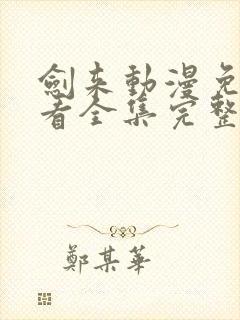 劍来動漫免
看全集完整
鄭某華